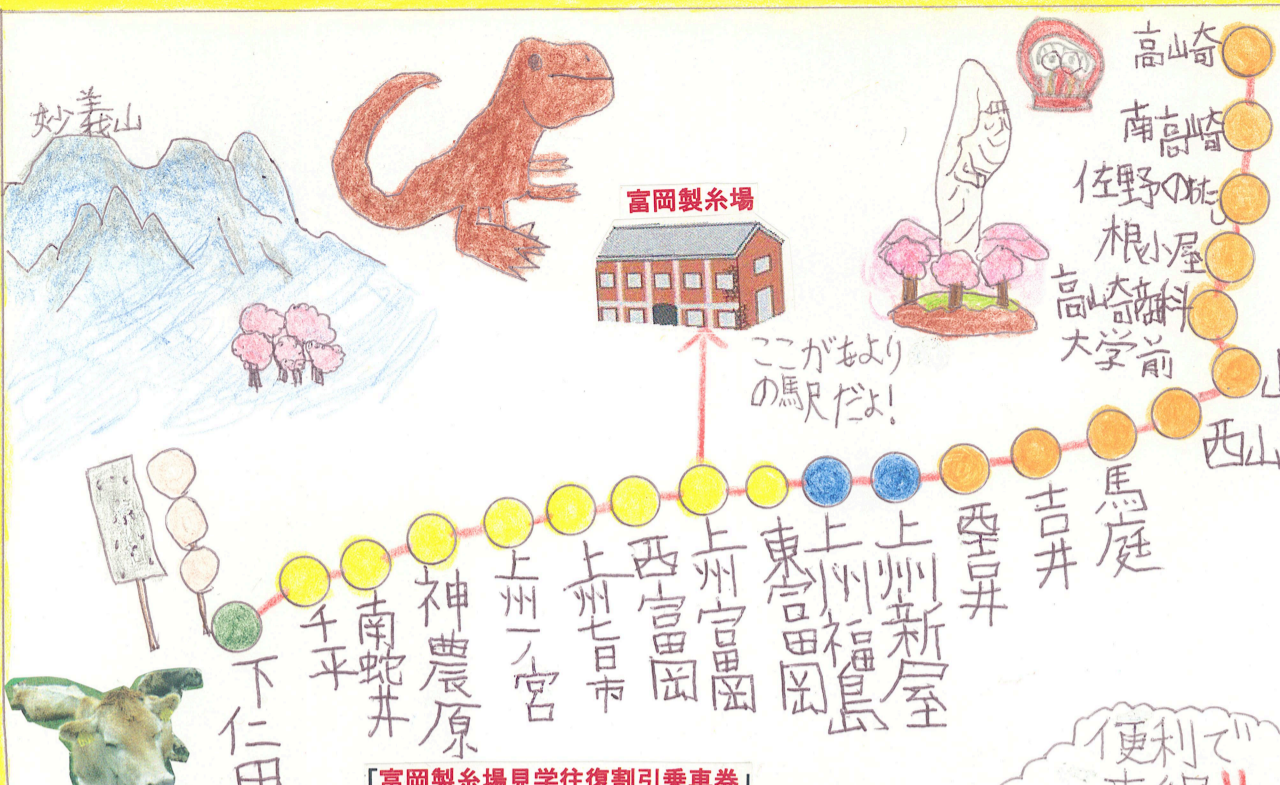 妙義山
富岡製糸場
ここがもより
の駅だよ!
高崎
南高崎
佐野のわたし
根小屋
高崎商科
大学前
山
西山
馬庭
吉井
西吉井
上州新屋
上州福島
東富岡
上州富岡
西富岡
上州七日市
上州一ノ宮
神農原
南蛇井
千平
下仁田
「富岡製糸場見学往復割引乗車券」
便利で